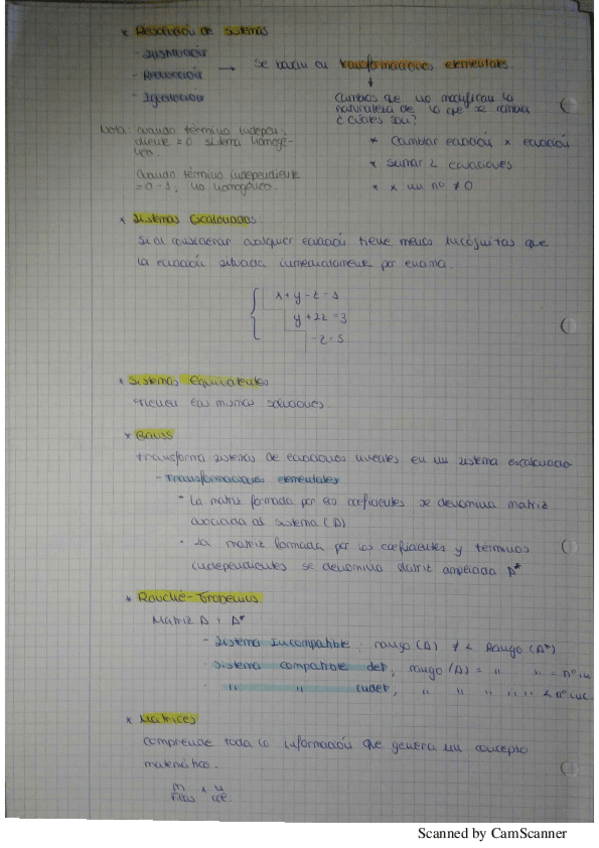 * Resolución de sistemas
- Sustitución
- Reducción → se basan en transformaciones elementales
- Igualación
↓
Cambios que no modifican la
naturaleza de lo que se cambia
¿cuáles son?
* Cambiar ecuación x ecuación
* sumar 2 ecuaciones
* x un nº ≠ 0
Nota: cuando término indepen-
diente = 0 sistema homogé-
neo.
Cuando término independiente
= 0 - 1, no homogéneo.
* Sistemas Escalonados
Si al considerar cualquier ecuación tiene menos incógnitas que
la ecuación situada inmediatamente por encima.
x + y - z = 1
y + 2z = 3
- z = 5
* Sistemas Equivalentes
tienen las mismas soluciones.
* Gauss
transforma sistemas de ecuaciones lineales en un sistema escalonado
- Transformaciones elementales
• La matriz formada por los coeficientes se denomina matriz
asociada al sistema (A)
• La matriz formada por los coeficientes y términos
independientes se denomina Matriz ampliada A*
* Rouché-Frobenius
Matriz A y A*
- Sistema Incompatible: rango (A) ≠ < Rango (A*)
- sistema compatible det, rango (A) = " " = nº inc
- " " indet, " " " " " < nº inc.
* Matrices
comprende toda la información que genera un concepto
matemático.
m x n
filas col.
Scanned by CamScanner